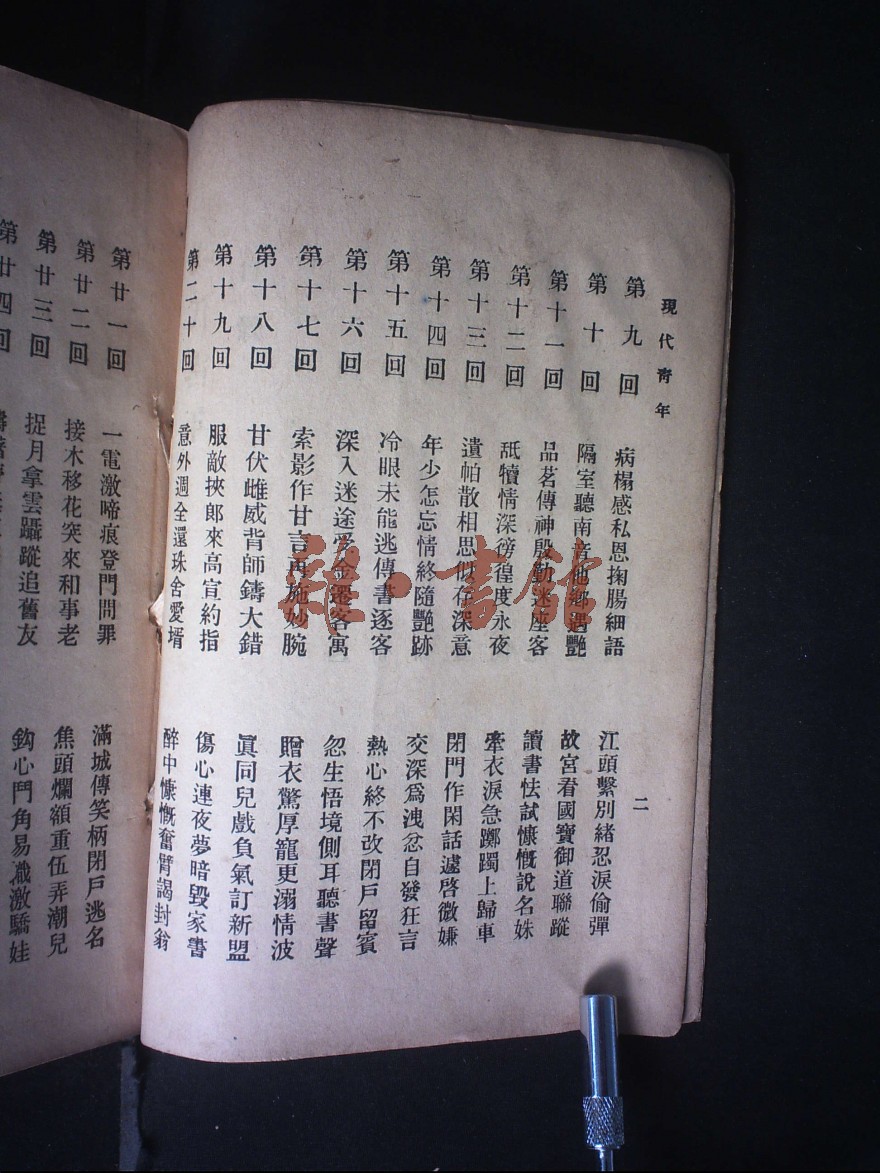 現代青年
二
第九回 病榻感私恩掬腸細語 江頭繫別緒忍淚偷彈
第十回 隔室聽南音他鄉遇艷 故宮看國寶御道聯蹤
第十一回 品茗傳神殷勤迷座客 讀書怯試慷慨說名姝
第十二回 舐犢情深徬徨度永夜 牽衣淚急躑躅上歸車
第十三回 遺帕散相思似存深意 閉門作閑話遽啓微嫌
第十四回 年少怎忘情終隨艷跡 交深爲洩忿自發狂言
第十五回 冷眼未能逃傳書逐客 熱心終不改閉戶留賓
第十六回 深入迷途受金遷客寓 忽生悟境側耳聽書聲
第十七回 索影作甘言再施妙腕 贈衣驚厚寵更溺情波
第十八回 甘伏雌威背師鑄大錯 眞同兒戲負氣訂新盟
第十九回 服敵挾郎來高宣約指 傷心連夜夢暗毀家書
第二十回 意外週全還珠舍愛壻 醉中慷慨奮臂謁封翁
第廿一回 一電激啼痕登門問罪 滿城傳笑柄閉戶逃名
第廿二回 接木移花突來和事老 焦頭爛額重伍弄潮兒
第廿三回 捉月拿雲躡蹤追舊友 鈎心鬥角易幟激驕娃
第廿四回
雜·書館